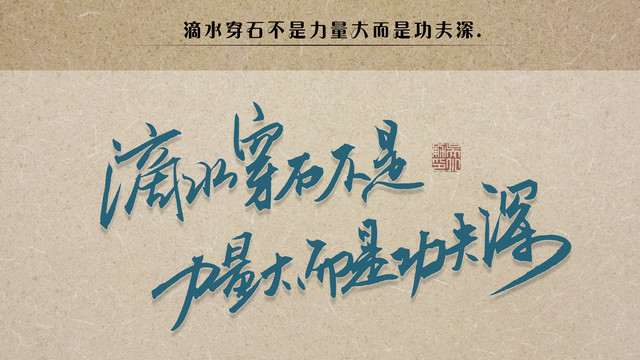 滴水穿石不是力量大而是功夫深.
滴水穿石不是
力量大而是功夫深